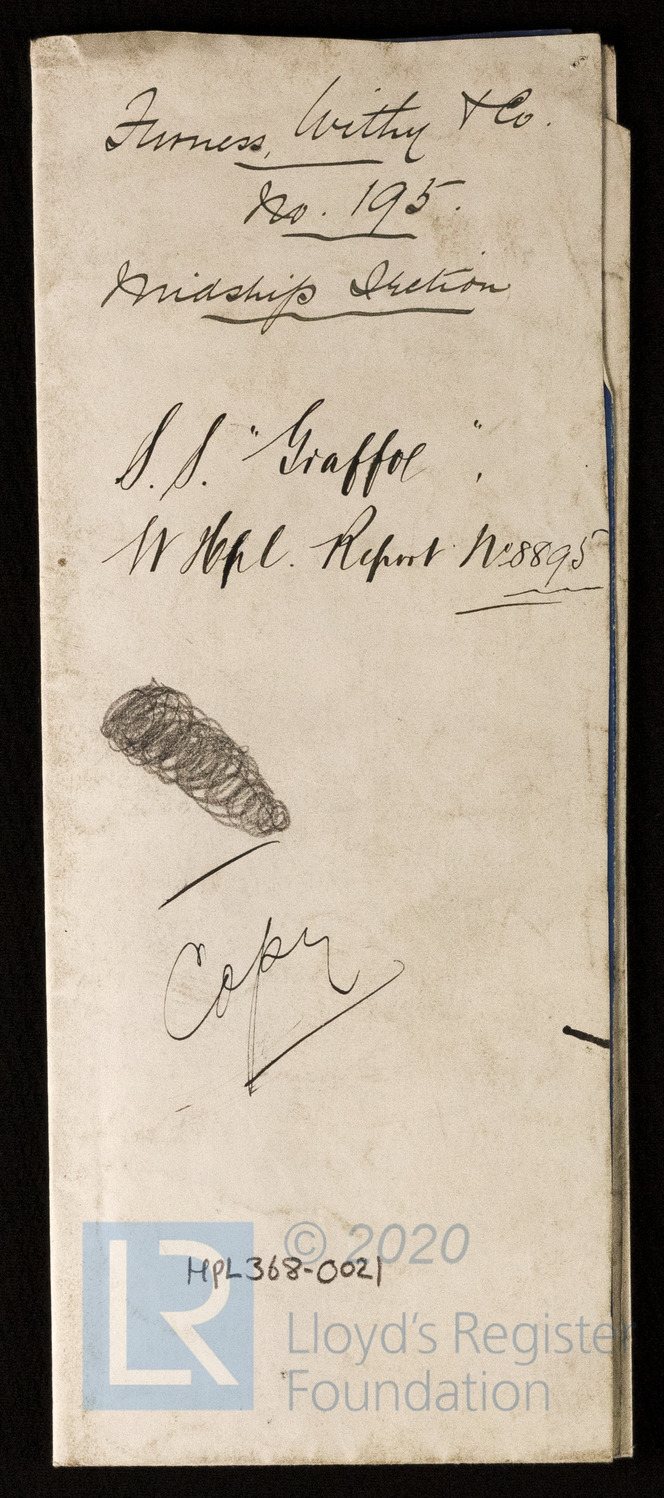 Furness, Withy & Co.
No. 195.
Midship Section
S.S. "Graffoe".
W Hpl. Report No 8895
Copy
© 2020
HPL368-0021
LR
Lloyd's Register
Foundation